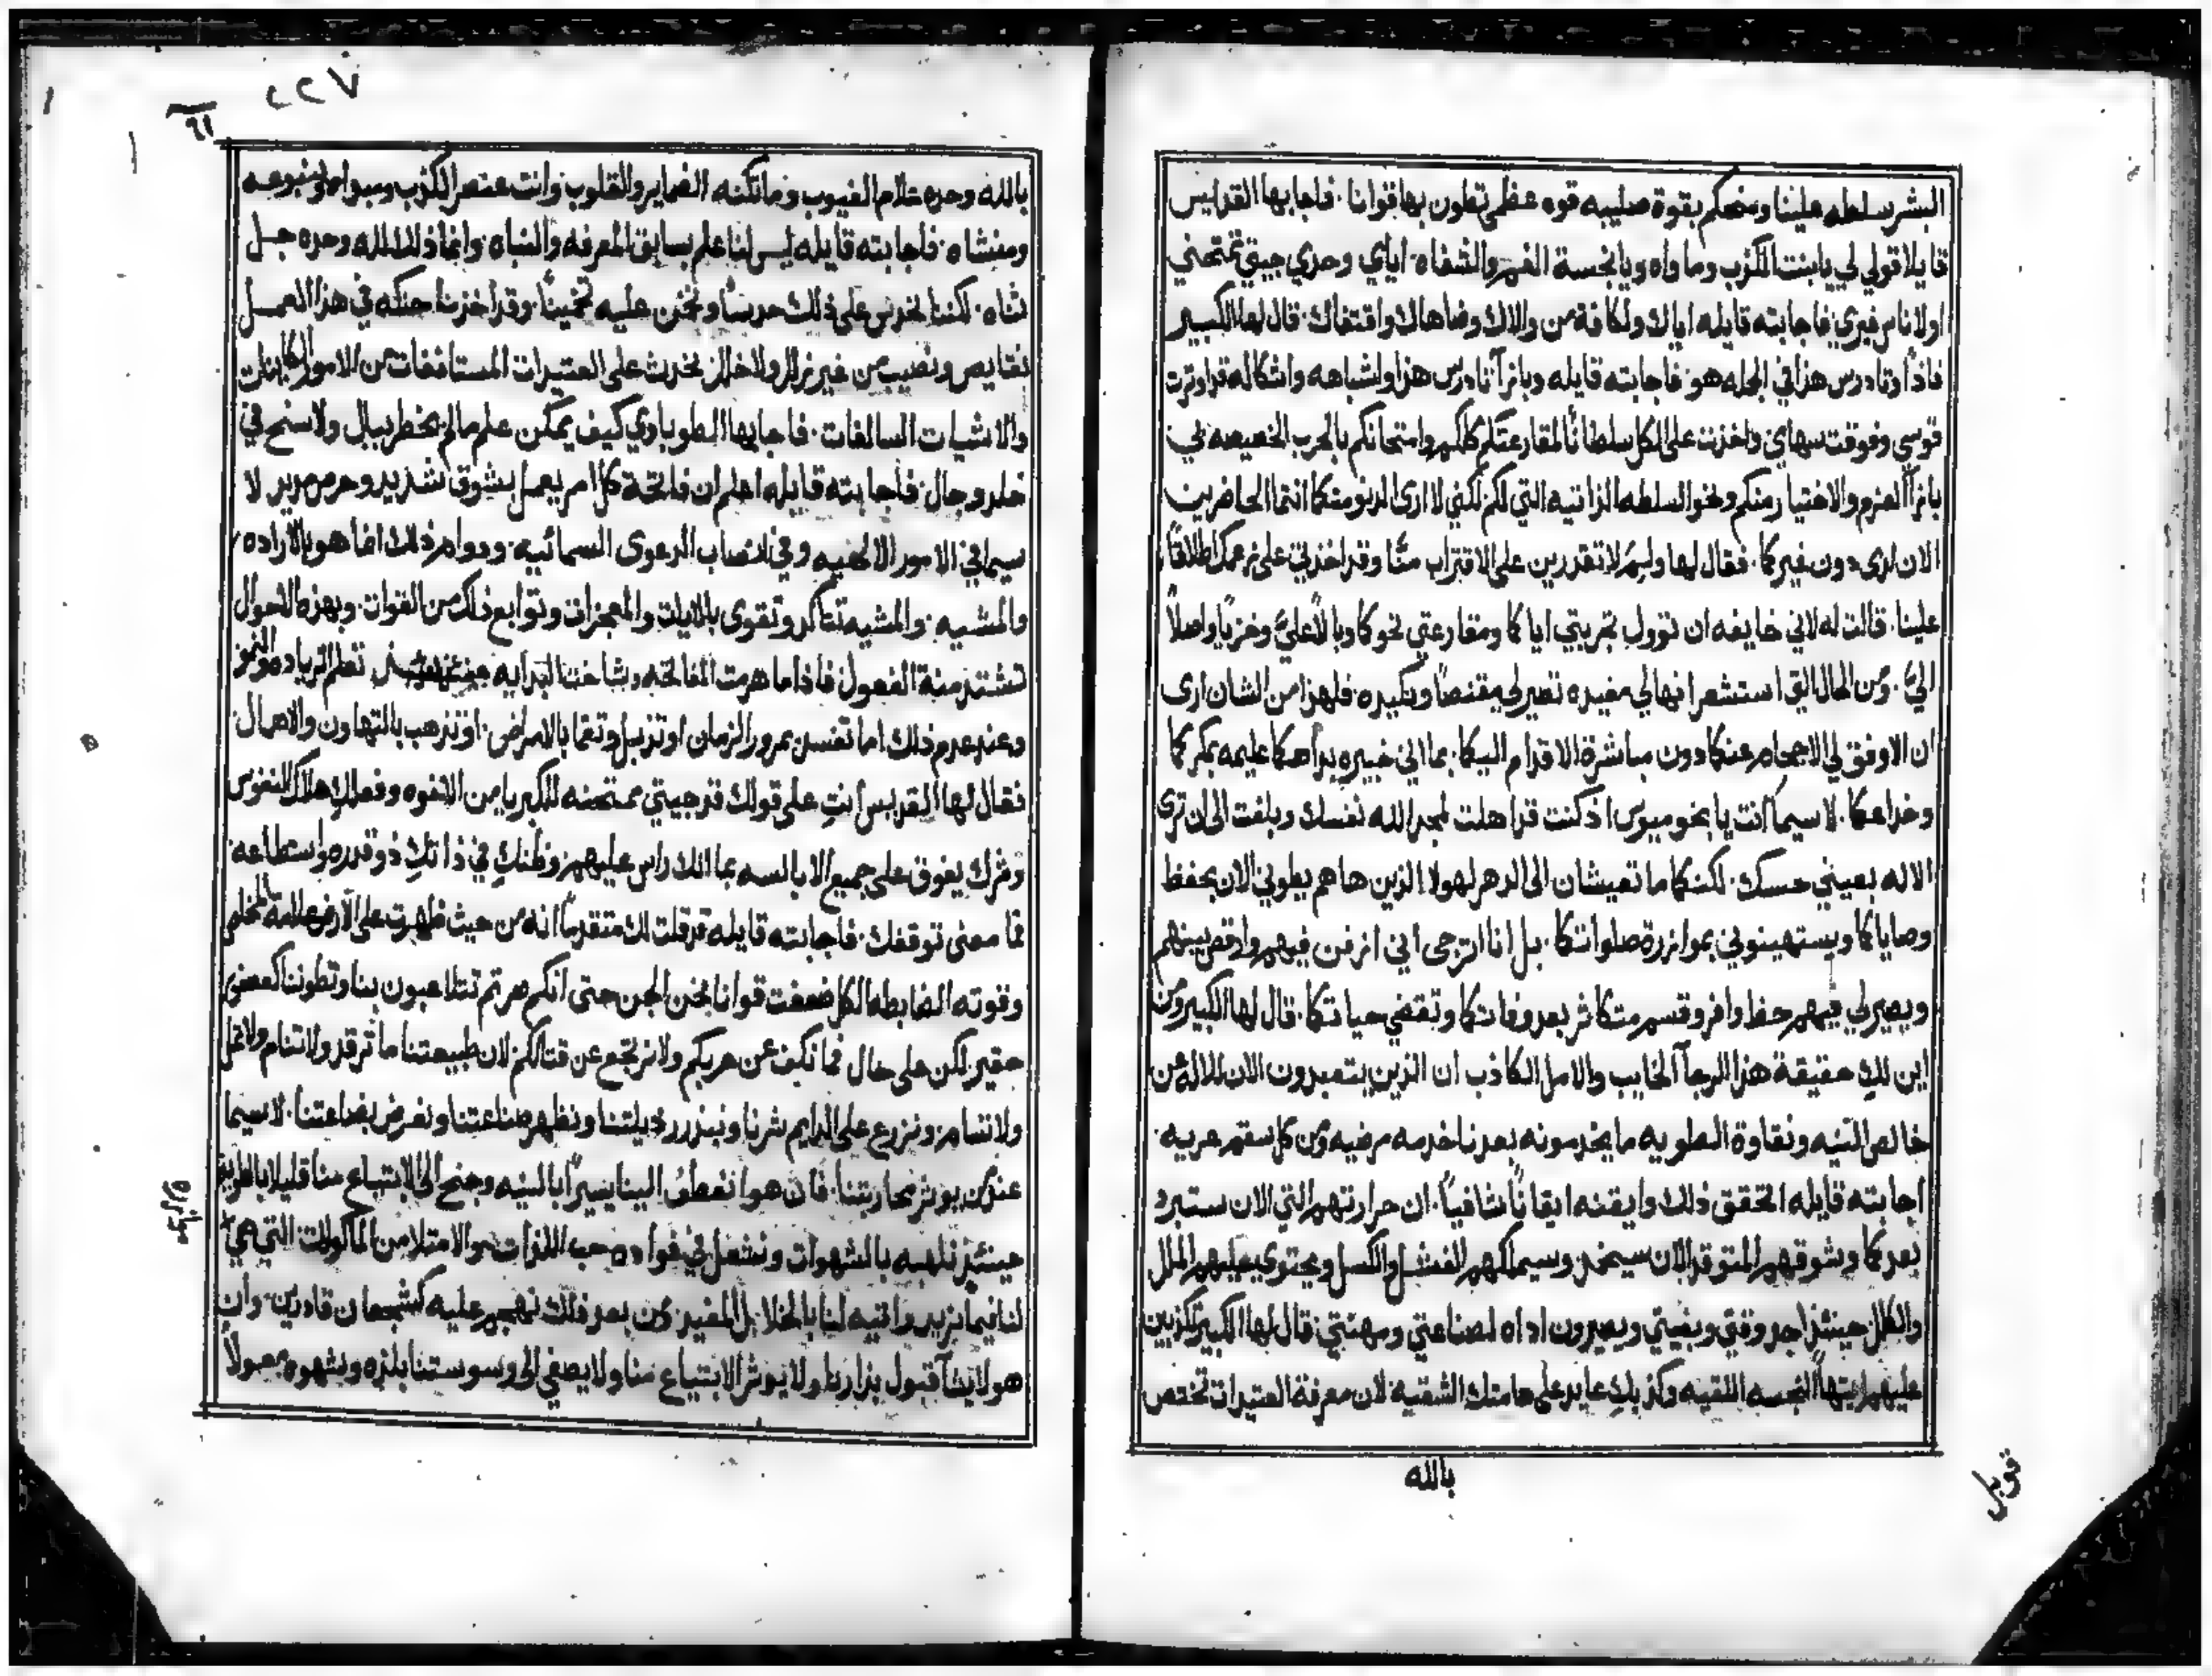 البشر سلطه علينا ومنحكم بقوة صليبه قوه عظمي تطون بها قوانا. فاجابها القديس
قايلا قولي لي يا بنت الكذب وماواه ويا نجسة الفم والشفاه. اياي وحدي جيتي تمتحني
اولاناس غيري. فاجابته قايله اياك ولكافة من والاك وضاهاك واقتفاك. قال لها الكبير
فاذا وتادرس هذا في الجمله هو. فاجابته قايله وبازآ تادرس هذا واشباهه واشكاله قد اوترت
قوسي وفوقت سهامي واخذت على الكل سلطانًا لمقارعتكم كلكم وامتحانكم بالحرب الخصيصه بي
بازآ العزم والاختيار منكم ونحو السلطه الذاتيه التي لكم لكني لا اري الدنو منكما انتما الحاضرين
الان لدى دون غيركما. فقال لها ولم لا تقدرين على الاقتراب منّا وقد اخذتي على زعمك اطلاقًا
علينا. قالت له لاني خايفه ان توول تجربتي اياكما ومقارعتي نحوكما وبالًا عليّ وخزيًا واصلًا
اليّ. ومن الحال التي استشعر انها لي مفيده تصير لي مقنصًا ومكيده. فلهذا من الشان اري
ان الاوفق لي الاحجام عنكما دون مباشرة الاقدام اليكما. بما اني خبيره بداهكما عليمه بمكركما
وخداعكما. لا سيما انت يا بخوميوس اذ كنت قد اهلت لمجد الله نفسك وبلغت الى ان ترى
الاله بعيني حسك. لكنكما ما تعيشان الى الدهر لهولا الذين هاهم يطوني الان بحفظ
وصاياكما ويستهينوني بموازرة صلواتكما. بل انا اترجى اني ازفن فيهم وارقص بينهم
ويصير لي فيهم حظ وافر وقسم متكاثر بعد وفاتكما وتقضي حياتكما. قال لها الكبير ومن
اين لكِ حقيقة هذا الرجآ الخايب والامل الكاذب ان الذين يتعبدون الان لله عن
خالص النيه ونقاوة الطويه ما يخدمونه بعدنا خدمه مرضيه ومن كل سقم عريه.
اجابته قايله اتحقق ذلك وايقنه ايقانًا شافيًا. ان حرارتهم التي الان ستبرد
بعدكما وشوقهم المتوقد الان سيخمد وسيملكهم الفشل والكسل ويحتوي عليهم الملل
والكلل حينئذ اجد وقتي وبغيتي ويصيرون اداه لصناعتي ومهنتي. قال لها الكبير تكذبين
عليهم ايتها النجسه اللقيه وكذبكِ عايد على هامتك الشقيه لان معرفة العتيدات تختص
بالله
قوبل
٢٢٧
بالله وحده علام الغيوب وما تكنه الضماير والقلوب وانت عنصر الكذب ومبداه وينبوعه
ومنشاه. فاجابته قايله ليس لنا علم بسابق المعرفه والنباه. وانما ذلك لله وحده جل
ثناه. لكننا نحدس على ذلك حدسًا ونخمن عليه تخمينًا. وقد اخذنا حنكه في هذا العمل
والانشيات السالفات. فاجابها الطوباوي كيف يمكن علم مالم يخطر ببال ولا سنح في
خلد وجال. فاجابته قايله اعلم ان فاتحة كل امر يعمل بشوق شديد وحرص مزيد لا
سيما في الامور الالهيه وفي انتصاب الدعوى السمائيه. ودوام ذلك انما هو بالاراده
والمشيه. والمشيه تتاكد وتقوى بالايات والمعجزات وتوابع ذلك من القوات. وبهذه الاحوال
وعند عدم ذلك اما تعنس بمرور الزمان او تذبل وتقما بالامراض. او تذهب بالتهاون والاهمال
فقال لها القديس انتِ على قولك قد جيتي ممتحنه للكبريا من الاخوه وفعلكِ هلاك النفوس
وشرك يفوق على جميع الابالسه بما انك راس عليهم وظنكِ في ذاتكِ ذو قدره واستطاعه
فما معنى توقفك. فاجابته قايله قد قلت لك متقدمًا انه من حيث ظهرت على الارض علامة المخلص
وقوته الضابطه الكل ضعفت قوانا نحن الجن حتى انكم صرتم تتلاعبون بنا وتطوننا كعصفور
حقير. لكن على حال فما نكف عن حربكم ولا نرتجع عن قتالكم لان طبيعتنا ما ترقد ولا تنام ولا تمل
ولا تسام. ونزرع على الدايم شرنا ونبذر رذيلتنا ونظهر صناعتنا ونعرض بضاعتنا. لا سيما
عند من يوثر محاربتنا. فان هو انعطف الينا يسيرًا بالنيه وجنح الى الابتياع منا قليلا بالطويه
حينئذ نلهبه بالشهوات ونشعل في فواده حب اللذات والامتلا من الماكولات التي هي
لنا فيما نريد مواتيه لنا بالخلابل المفيد. ومن بعد ذلك نهجم عليه كشجعان قادرين. وان
هو لا يشآ قبول بذارنا ولا يوثر الابتياع منا ولا يصغي الى وسوستنا بلذه وبشهوه معمولا